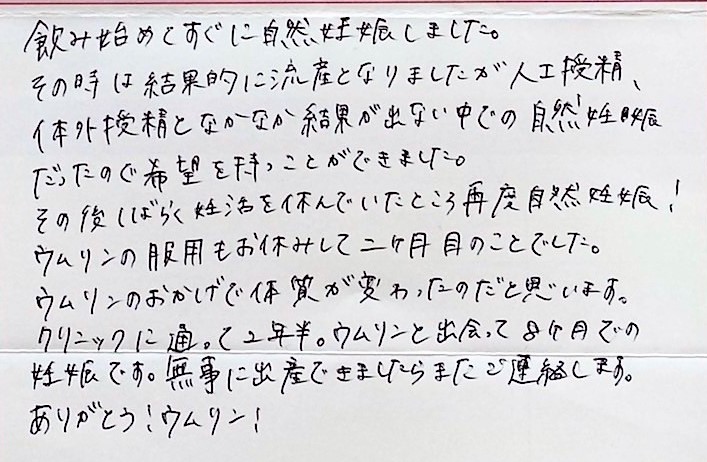 飲み始めてすぐに自然妊娠しました。
その時は結果的に流産となりましたが人工授精、
体外授精となかなか結果が出ない中での自然妊娠
だったので希望を持つことができました。
その後しばらく妊活を休んでいたところ再度自然妊娠！
ウムリンの服用もお休みして二ケ月目のことでした。
ウムリンのおかげで体質が変わったのだと思います。
クリニックに通って2年半。ウムリンと出会って8ケ月での
妊娠です。無事に出産できましたらまたご連絡します。
ありがとう！ウムリン！